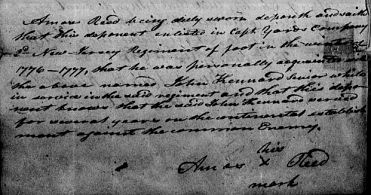 Amos Reed being duly sworn deposeth and saith
that this deponent enlisted in Capt. Yards Company
2d New-Jersey Regiment of foot in the
1776-1777, that he was personally acquainted
the above named John Kennard Senior while
in service in the said regiment and that this depo
nent knows that the said John Kennard served
for several years on the continental establish
ment against the common Enemy.
his
Amos x Reed
mark